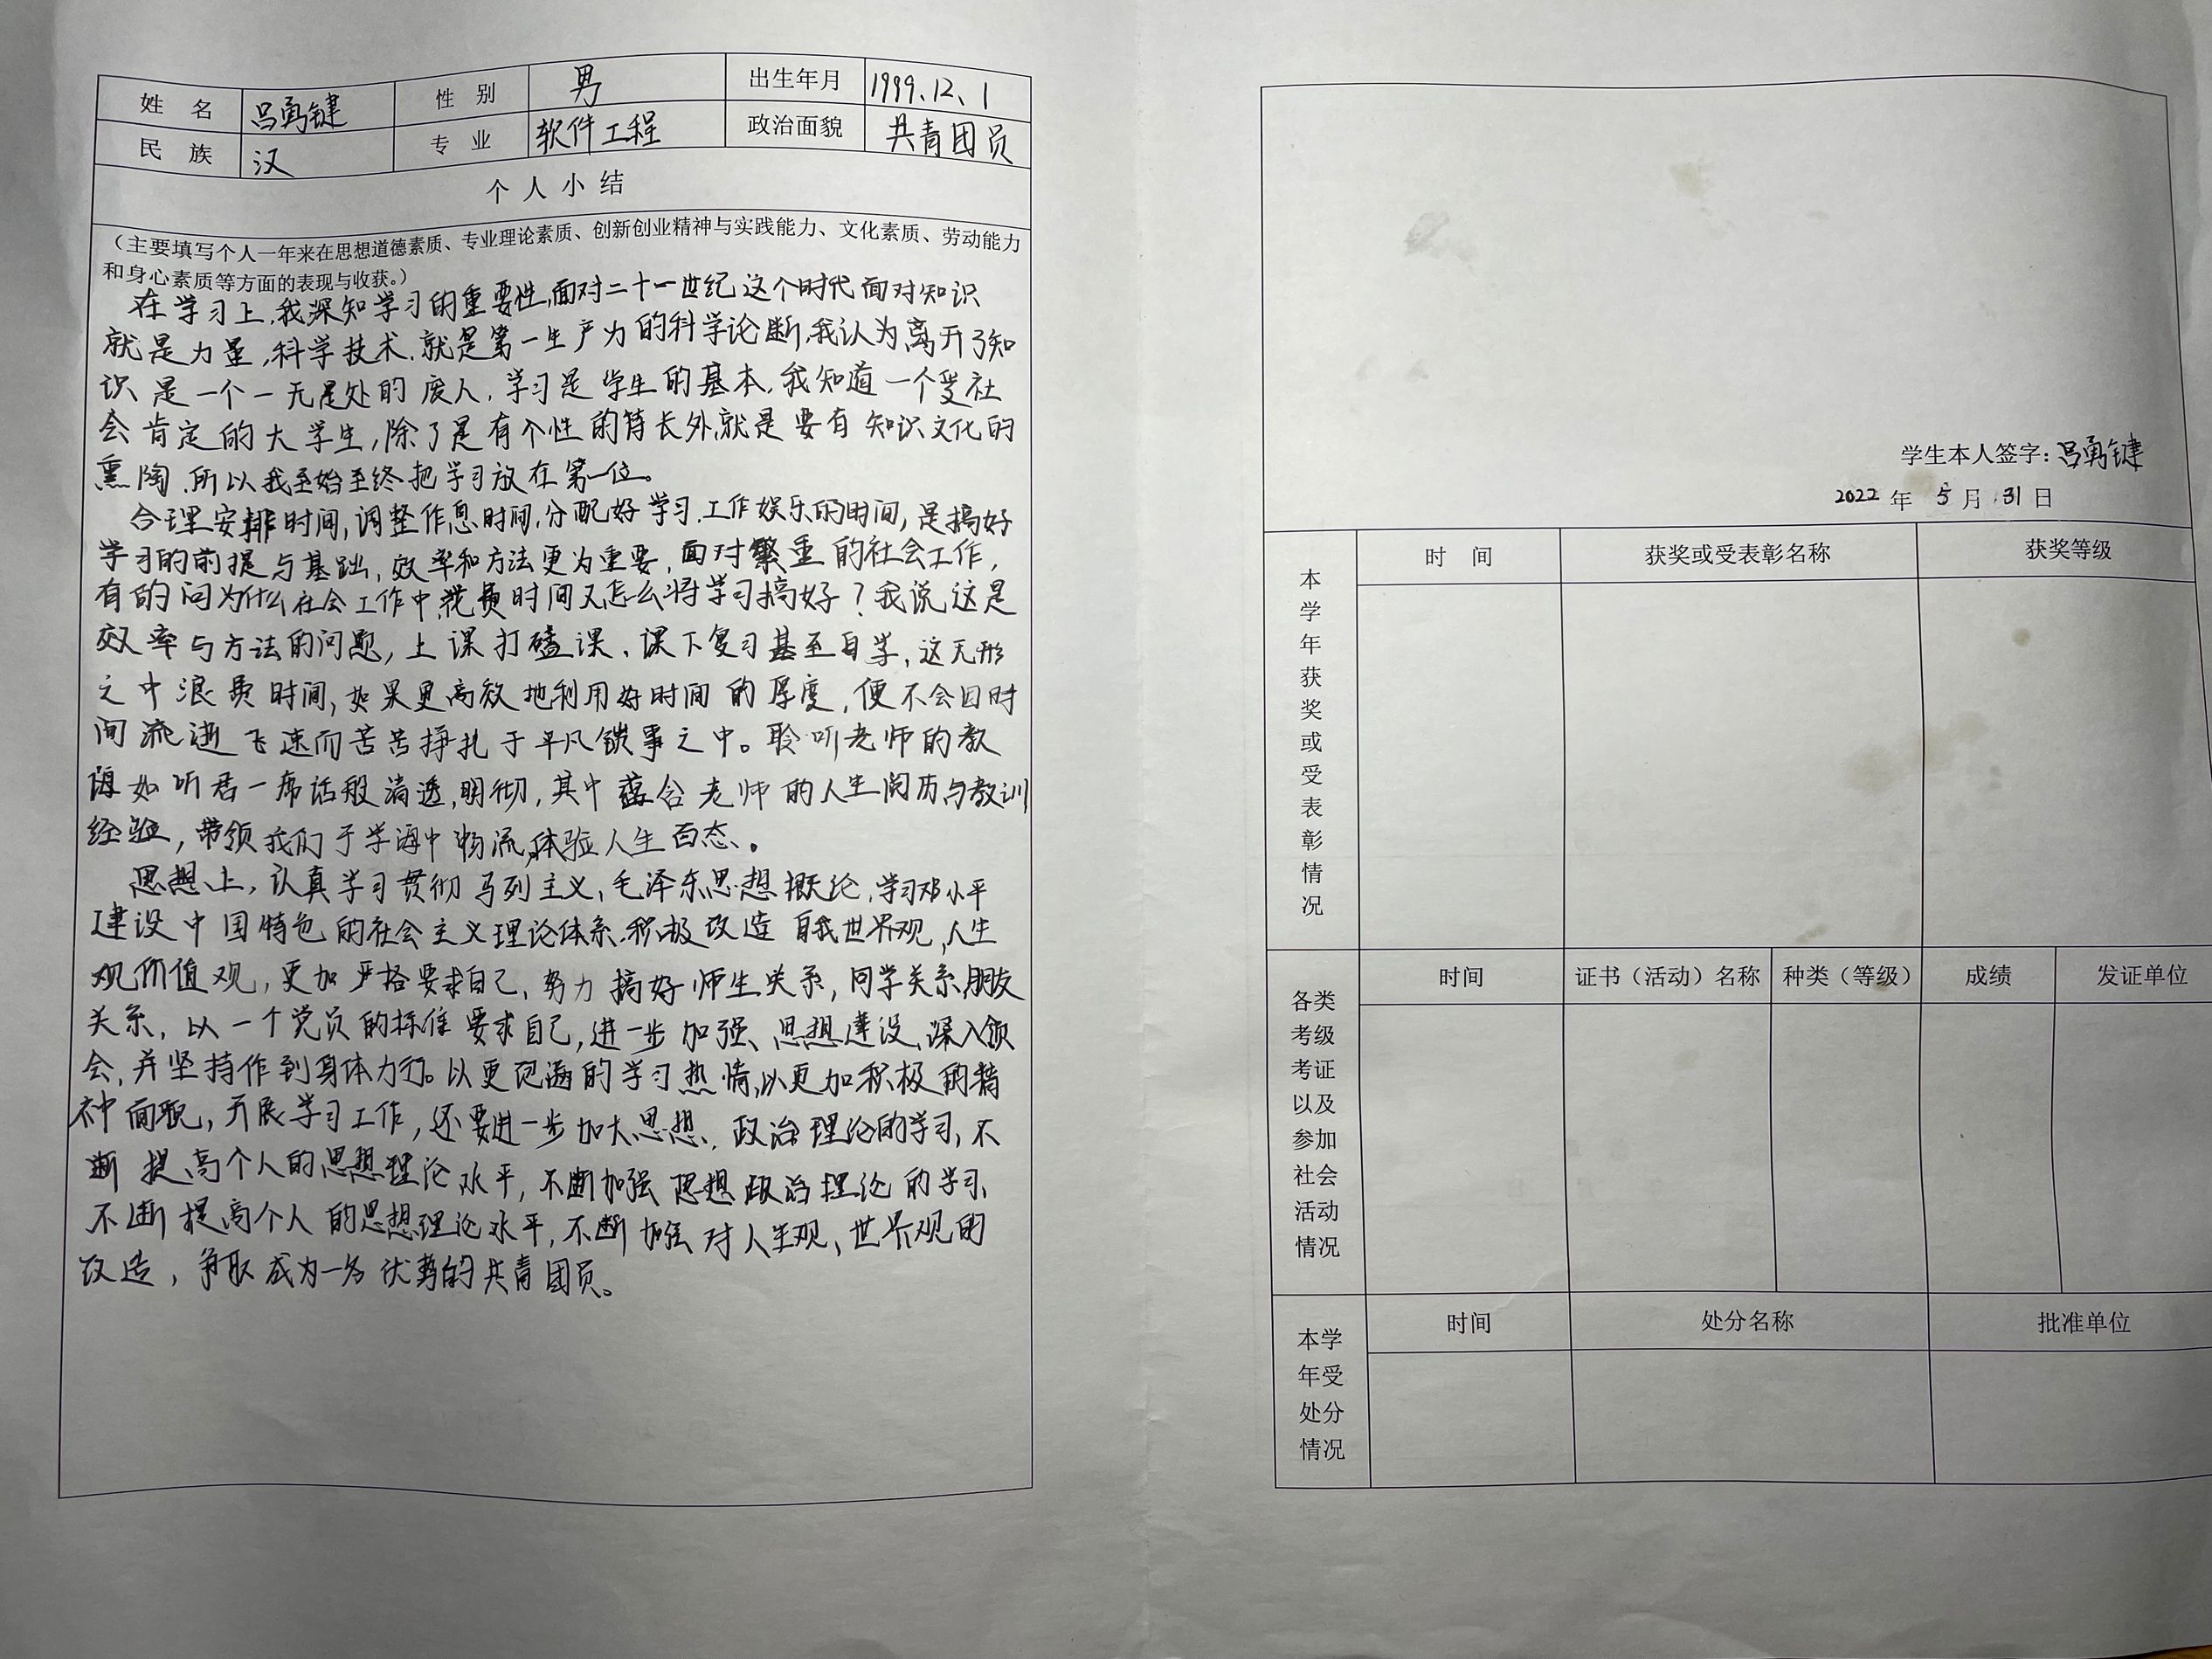 姓 名 吕勇键 性 别 男 出生年月 1999.12.1
民 族 汉 专 业 软件工程 政治面貌 共青团员
个 人 小 结
（主要填写个人一年来在思想道德素质、专业理论素质、创新创业精神与实践能力、文化素质、劳动能力
和身心素质等方面的表现与收获。）
在学习上,我深知学习的重要性,面对二十一世纪这个时代,面对知识
就是力量,科学技术,就是第一生产力的科学论断,我认为离开了知
识是一个一无是处的废人,学习是学生的基本,我知道一个受社
会肯定的大学生,除了是有个性的特长外,就是要有知识文化的
熏陶.所以我至始至终把学习放在第一位。
合理安排时间,调整作息时间,分配好学习.工作娱乐的用间,是搞好
学习的前提与基础,效率和方法更为重要,面对繁重的社会工作,
有的问为什么社会工作中,浪费时间又怎么将学习搞好?我说这是
效率与方法的问题,上课打瞌课、课下复习甚至自学,这无形
之中浪费时间,如果更高效地利用好时间的厚度,便不会因时
间流逝飞速而苦苦挣扎于平凡锁事之中。聆听老师的教
诲如听君一席话般清透,明彻,其中蕴含老师的人生阅历与教训
经验,带领我们于学海中物流,体验人生百态。
思想上,认真学习贯彻马列主义,毛泽东思想概论,学习邓小平
建设中国特色的社会主义理论体系.积极改造自我世界观,人生
观价值观,更加严格要求自己、努力搞好师生关系,同学关系,朋友
关系,以一个党员的标准要求自己,进一步加强思想建设、深入领
会,并坚持作到身体力行。以更饱满的学习热情,以更加积极的精
神面貌,开展学习工作,还要进一步加大思想、政治理论的学习,不
断提高个人的思想理论水平,不断加强思想政治理论的学习、
不断提高个人的思想理论水平,不断加强对人生观、世界观的
改造,争取成为一名优秀的共青团员。
学生本人签字：吕勇键
2022 年 5 月 31 日
本学年获奖或受表彰情况 时 间 获奖或受表彰名称 获奖等级
各类考级考证以及参加社会活动情况 时间 证书（活动）名称 种类（等级） 成绩 发证单位
本学年受处分情况 时间 处分名称 批准单位